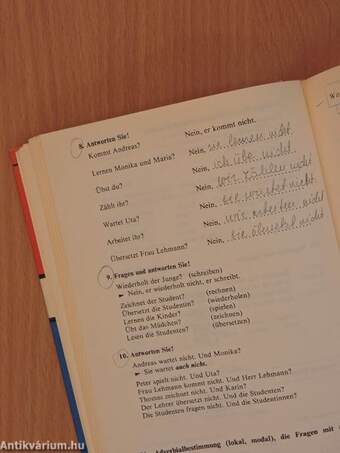 8. Antworten Sie!
Kommt Andreas? Nein, er kommt nicht.
Lernen Monika und Maria? Nein, sie lernen nicht
Übst du? Nein, ich übe nicht
Zählt ihr? Nein, wir zählen nicht
Wartet Uta? Nein, sie wartet nicht.
Arbeitet ihr? Nein, wir arbeiten nicht
Übersetzt Frau Lehmann? Nein, sie nicht
9. Fragen und antworten Sie!
Wiederholt der Junge? (schreiben)
► Nein, er wiederholt nicht, er schreibt.
Zeichnet der Student? (rechnen)
Übersetzt die Studentin? (wiederholen)
Lernen die Kinder? (spielen)
Übt das Mädchen? (zeichnen)
Lesen die Studenten? (übersetzen)
10. Antworten Sie!
Andreas wartet nicht. Und Monika?
► Sie wartet auch nicht.
Peter spielt nicht. Und Uta?
Frau Lehmann kommt nicht. Und Herr Lehmann?
Thomas zeichnet nicht. Und Karin?
Der Lehrer übersetzt nicht. Und die Studenten?
Die Studenten fragen nicht. Und die Studentinnen?
Adverbialbestimmung (lokal, modal), die Fragen mit
antikvárium.hu